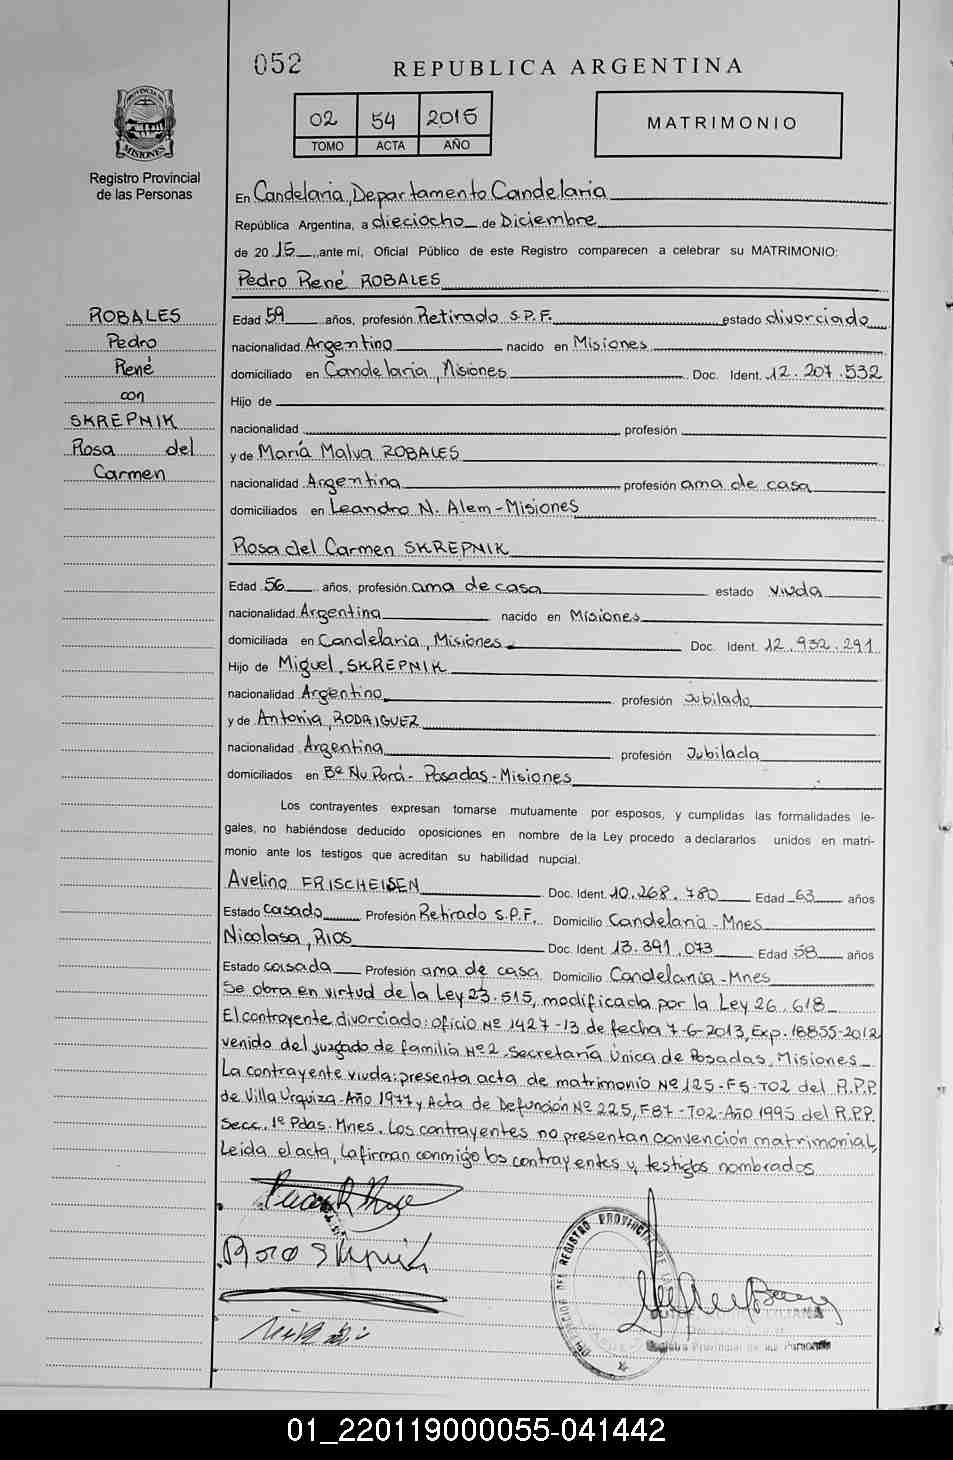 052
REPUBLICA ARGENTINA
02 54 2015
TOMO ACTA AÑO
MATRIMONIO
PROVINCIA DE
MISIONES
Registro Provincial
de las Personas
ROBALES
Pedro
René
con
SKREPNIK
Rosa del
Carmen
En Candelaria, Departamento Candelaria
República Argentina, a dieciocho de Diciembre
de 2015, ante mí, Oficial Público de este Registro comparecen a celebrar su MATRIMONIO:
Pedro René ROBALES
Edad 59 años, profesión Retirado S.P.F. estado divorciado
nacionalidad Argentino nacido en Misiones
domiciliado en Candelaria, Misiones Doc. Ident. 12.207.532
Hijo de
nacionalidad profesión
y de María Malva ROBALES
nacionalidad Argentina profesión ama de casa
domiciliados en Leandro N. Alem - Misiones
Rosa del Carmen SKREPNIK
Edad 56 años, profesión ama de casa estado viuda
nacionalidad Argentina nacido en Misiones
domiciliada en Candelaria, Misiones Doc. Ident. 12.932.291
Hijo de Miguel, SKREPNIK
nacionalidad Argentino profesión Jubilado
y de Antonia, RODRIGUEZ
nacionalidad Argentina profesión Jubilada
domiciliados en Bº Ñu Porá - Posadas - Misiones
Los contrayentes expresan tomarse mutuamente por esposos, y cumplidas las formalidades le-
gales, no habiéndose deducido oposiciones en nombre de la Ley procedo a declararlos unidos en matri-
monio ante los testigos que acreditan su habilidad nupcial.
Avelino FRISCHEISEN Doc. Ident. 10.268.780 Edad 63 años
Estado casado Profesión Retirado S.P.F. Domicilio Candelaria - Mnes
Nicolasa, RIOS Doc. Ident. 13.391.073 Edad 58 años
Estado casada Profesión ama de casa Domicilio Candelaria - Mnes
Se obra en virtud de la Ley 23.515, modificada por la Ley 26.618
El contrayente divorciado: oficio Nº 1427-13 de fecha 7-6-2013, Exp. 18855-2012
venido del juzgado de familia Nº2, Secretaría Única de Posadas, Misiones
La contrayente viuda: presenta acta de matrimonio Nº 125-F5-T02 del R.P.P.
de Villa Urquiza - Año 1977 y Acta de Defunción Nº 225, F87-T02-Año 1995 del R.P.P.
Secc. 1º Pdas. Mnes. Los contrayentes no presentan convención matrimonial,
Leída el acta, la firman conmigo los contrayentes y testigos nombrados
Rosa Skrepnik
REGISTRO PROVINCIAL DE
Registro Provincial de las Personas
01_220119000055-041442